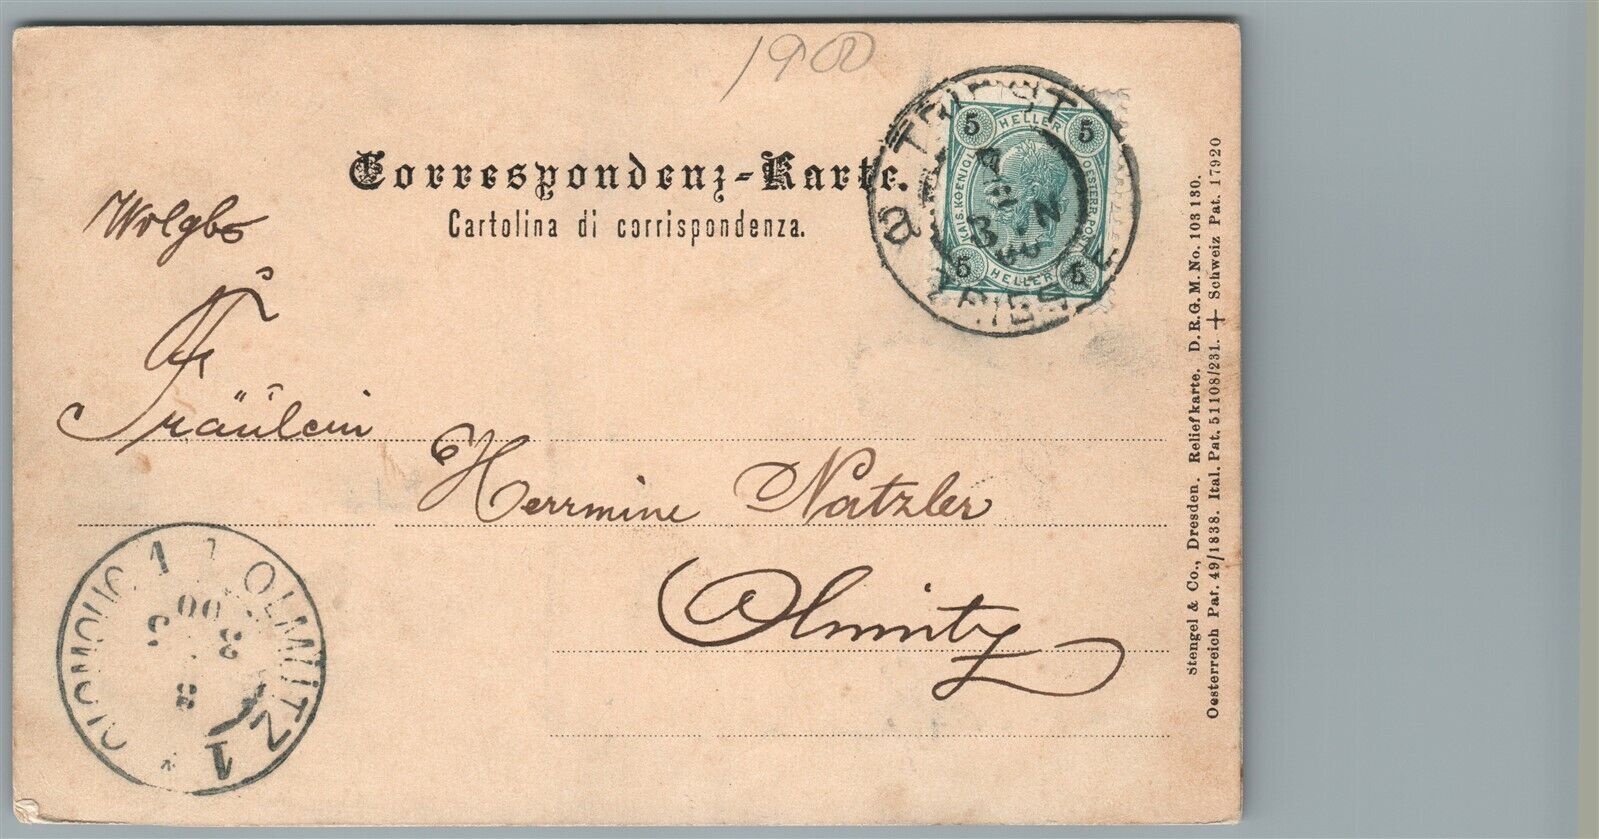 1900
Correspondenz-Karte.
Cartolina di corrispondenza.
TRIEST
TRIEST
5 HELLER 5
KAIS. KOENIGL. OESTERR. POST
5 HELLER 5
Fräulein
Herrmine Natzler
Olmitz
OLMÜTZ 1
OLOMOUC 1
Stengel & Co., Dresden. Reliefkarte. D. R. G. M. No. 103 130.
Oesterreich Pat. 49/1838. Ital. Pat. 51108/231. + Schweiz Pat. 17920